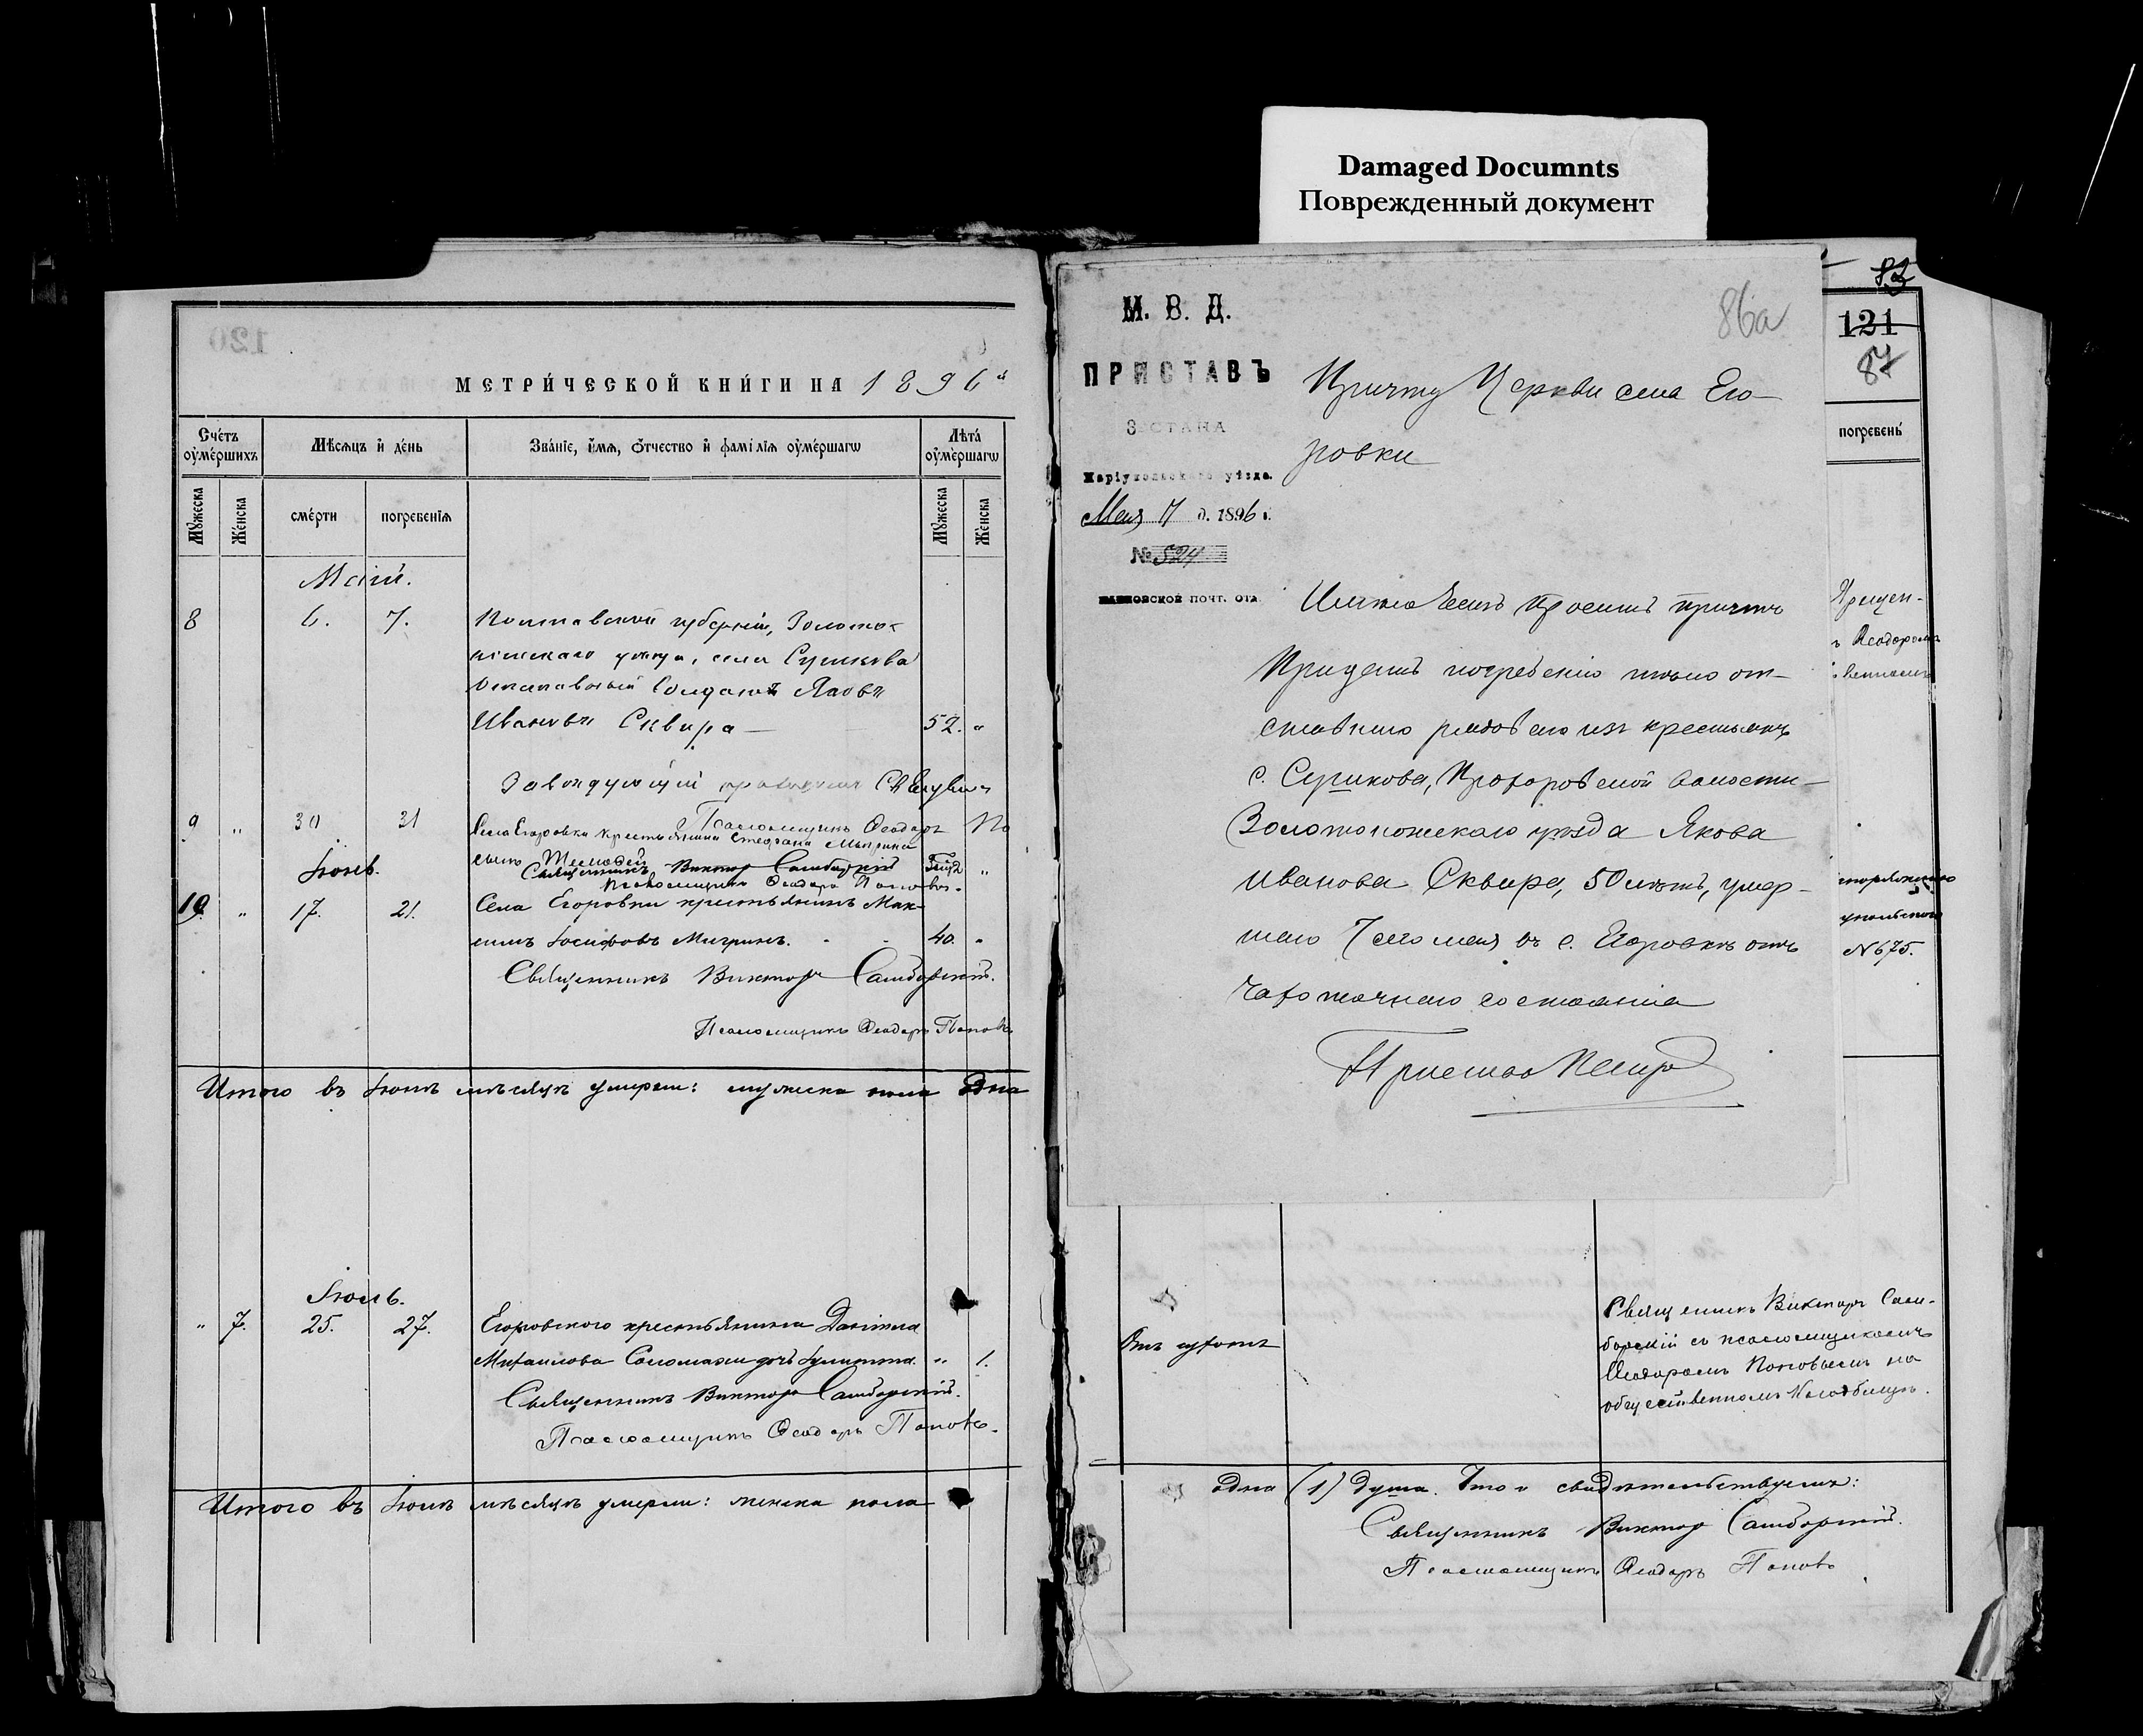 Damaged Documnts
Поврежденный документ
МЕТРИЧЕСКОЙ КНИГИ НА 1896
Счетъ оумершихъ
Мѣсяцъ и день
Званіе, имя, отчество и фамилія оумершагω
Лѣта оумершагω
Мужеска
Женска
смерти
погребенія
Мужеска
Женска
Май.
8 6. 7. Полтавской губерніи, Золотоно-
шскаго уѣзда, села Сушкова
отставной солдатъ Яковъ
Ивановъ Сквира — 52. "
Завѣдующій
Псаломщикъ Ѳеодоръ По
9 " 30 31 Села Егоровки крестьянина Стефана Мигрина
сынъ Тимоѳей
Священникъ Викторъ Самборскій
Псаломщикъ Ѳеодоръ Поповъ.
Іюнь.
10. " 17. 21. Села Егоровки крестьянинъ Мак-
симъ Іосифовъ Мигринъ. 40. "
Священникъ Викторъ Самборскій.
Псаломщикъ Ѳеодоръ Поповъ
Итого въ Іюнѣ мѣсяцѣ умерли: мужеска пола одна
Іюль.
" 7. 25. 27. Егоровского крестьянина Даніила
Михаилова Саломахи дочь Іулитта. " 1.
Священникъ Викторъ Самборскій.
Псаломщикъ Ѳеодоръ Поповъ.
Итого въ Іюлѣ мѣсяцѣ умерли: женска пола
М. В. Д.
ПРИСТАВЪ
3 СТАНА
Маріупольскаго уѣзда.
Мая 7 д. 1896 г.
№ 524
почт. отд.
86а
Причту Церкви села Его-
ровки
просить причтъ
Придать погребенію тѣло от-
ставнаго рядоваго изъ крестьянъ
с. Сушкова, Прохоровской волости
Золотоношскаго уѣзда Якова
Иванова Сквира, 50 лѣтъ, умер-
шаго 7 сего мая въ с. Егоровкѣ отъ
чахоточнаго состоянія
Приставъ
82
121
87
погребенъ
ъ Ѳеодоромъ
№ 675.
Священникъ Викторъ Сам-
борскій съ псаломщикомъ
Ѳеодоромъ Поповымъ на
общественномъ кладбищѣ.
одна (1) душа. Что и свидѣтельствуемъ:
Священникъ Викторъ Самборскій.
Псаломщикъ Ѳеодоръ Поповъ